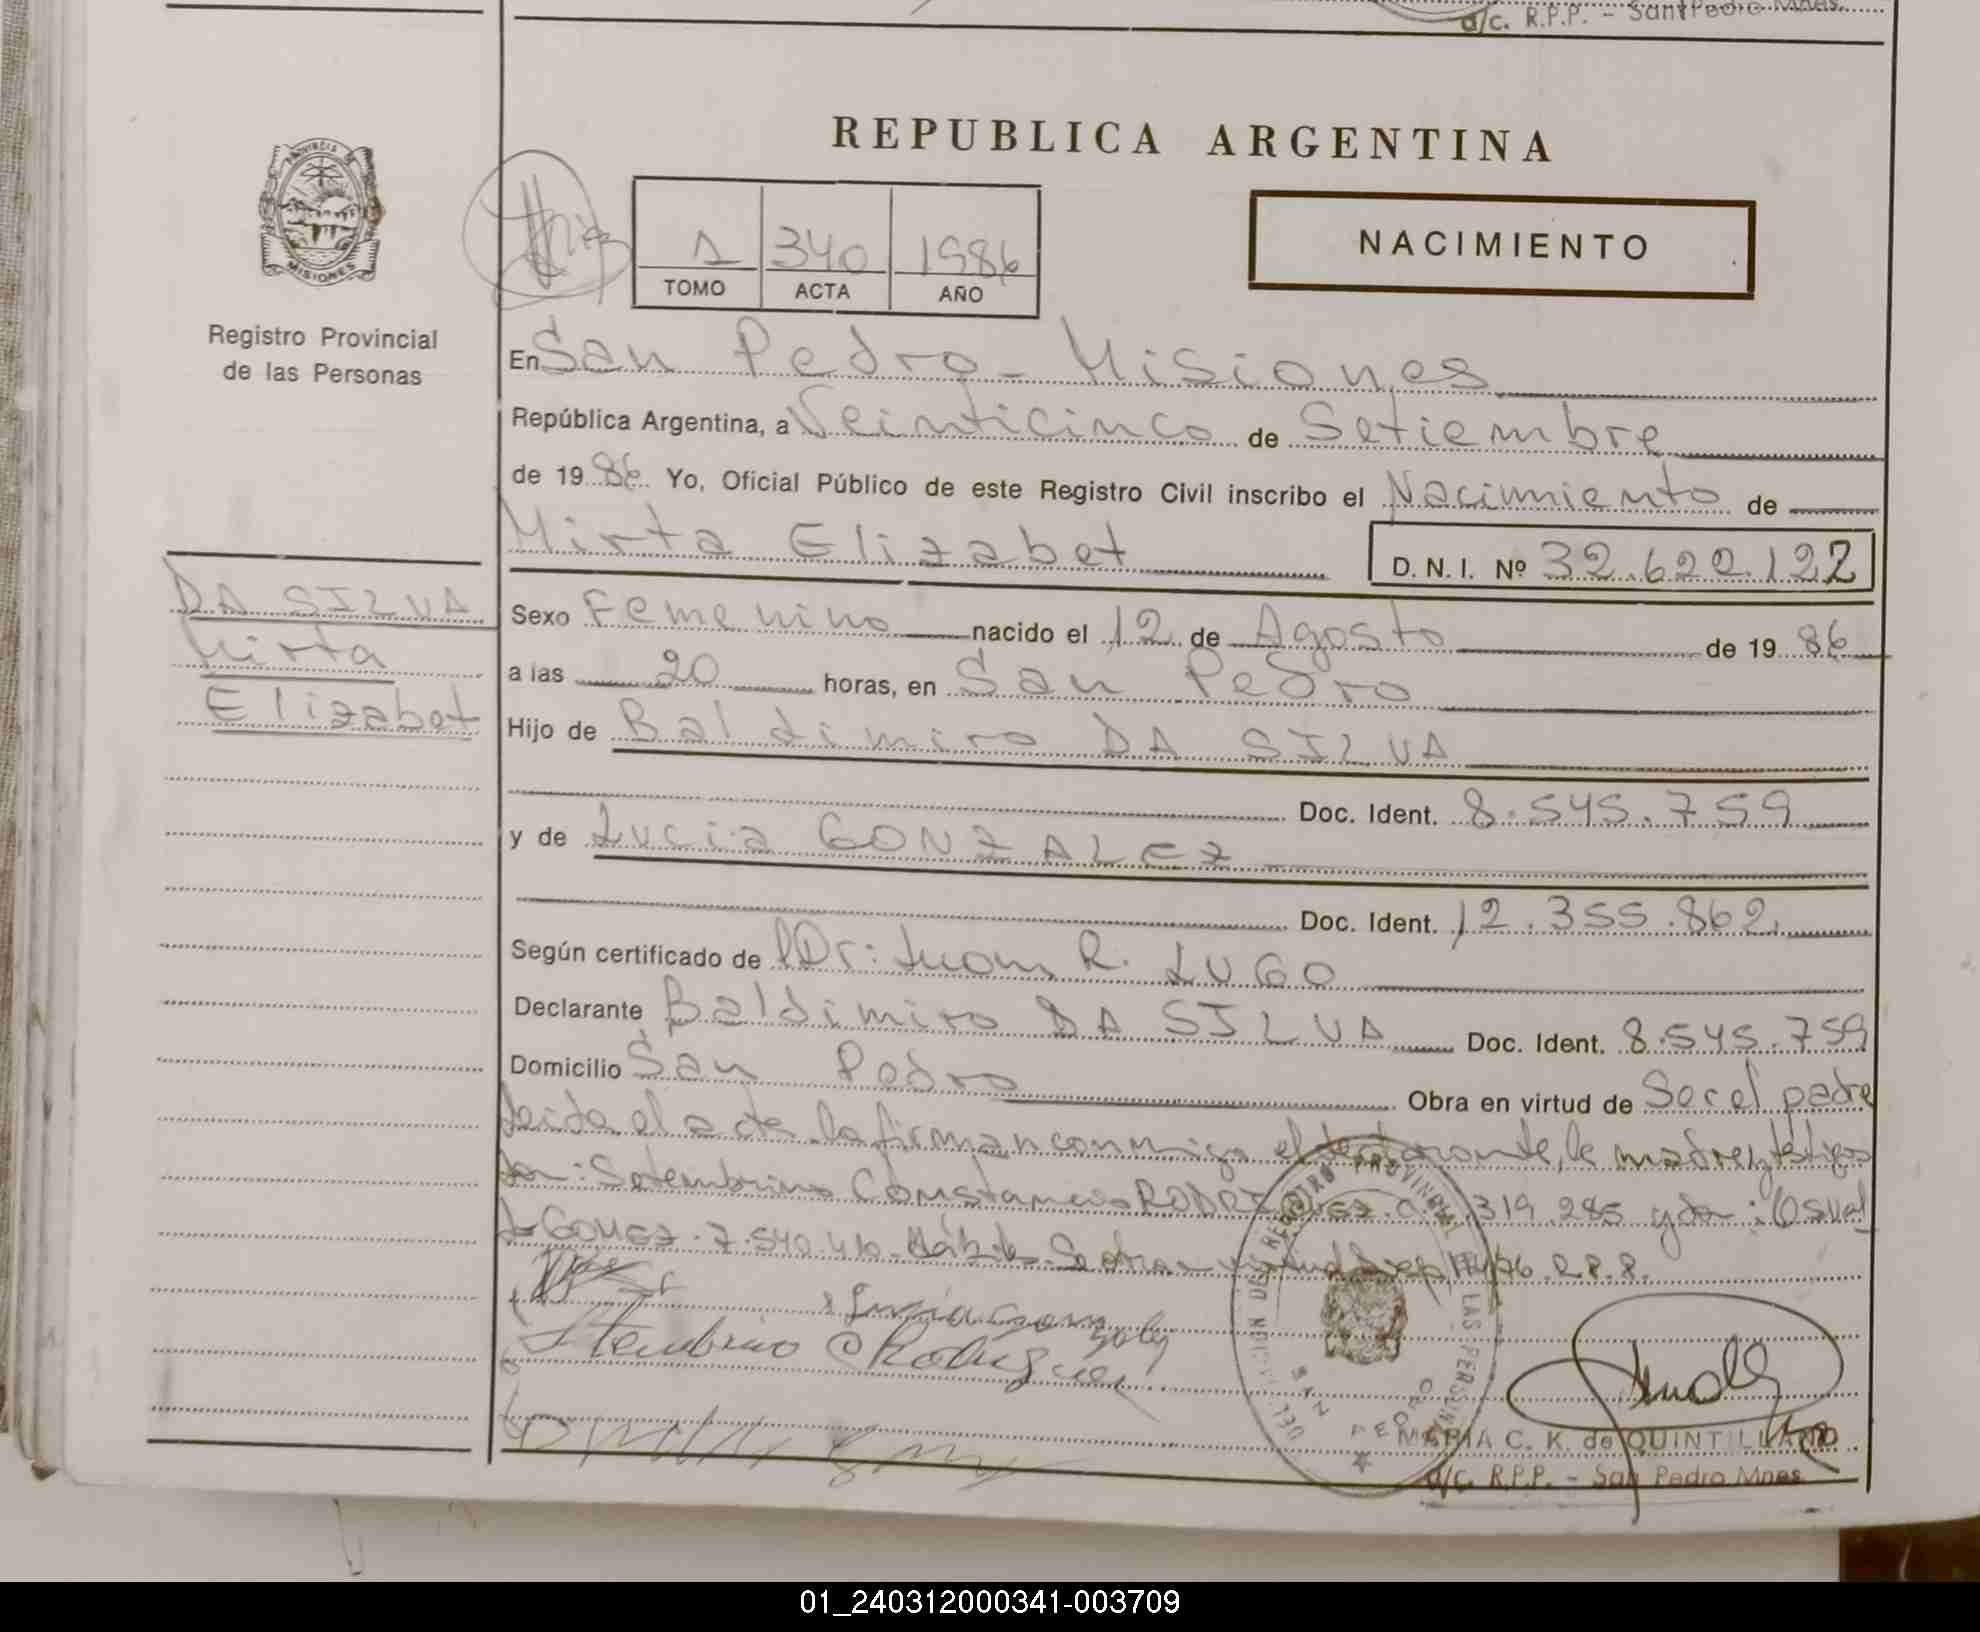 d/c. R.P.P. - San Pedro Mnes.
REPUBLICA ARGENTINA
PROVINCIA DE
MISIONES
Registro Provincial
de las Personas
1 340 1986
TOMO ACTA AÑO
NACIMIENTO
En San Pedro - Misiones
República Argentina, a Veinticinco de Setiembre
de 19 86 Yo, Oficial Público de este Registro Civil inscribo el Nacimiento de
Mirta Elizabet D. N. I. Nº 32.622.122
DA SILVA
Mirta
Elizabet
Sexo Femenino nacido el 12 de Agosto de 19 86
a las 20 horas, en San Pedro
Hijo de Baldimiro DA SILVA
Doc. Ident. 8.545.759
y de Lucia GONZALEZ
Doc. Ident. 12.355.862.
Según certificado de Dr: Juan R. LUGO
Declarante Baldimiro DA SILVA Doc. Ident. 8.545.759
Domicilio San Pedro Obra en virtud de Ser el padre
Leida el acta la firman conmigo el declarante, la madre, y testigos
don: Setembrino Constancio RODRIGUEZ. 319.285 y don: Osval
do GOMEZ. 7.540.410.
Setembrino C Rodriguez
DEL REGISTRO PROVINCIAL DE LAS PERSONAS
SAN PEDRO
MARIA C. K. de QUINTILLANO
d/c. R.P.P. - San Pedro Mnes.
01_240312000341-003709